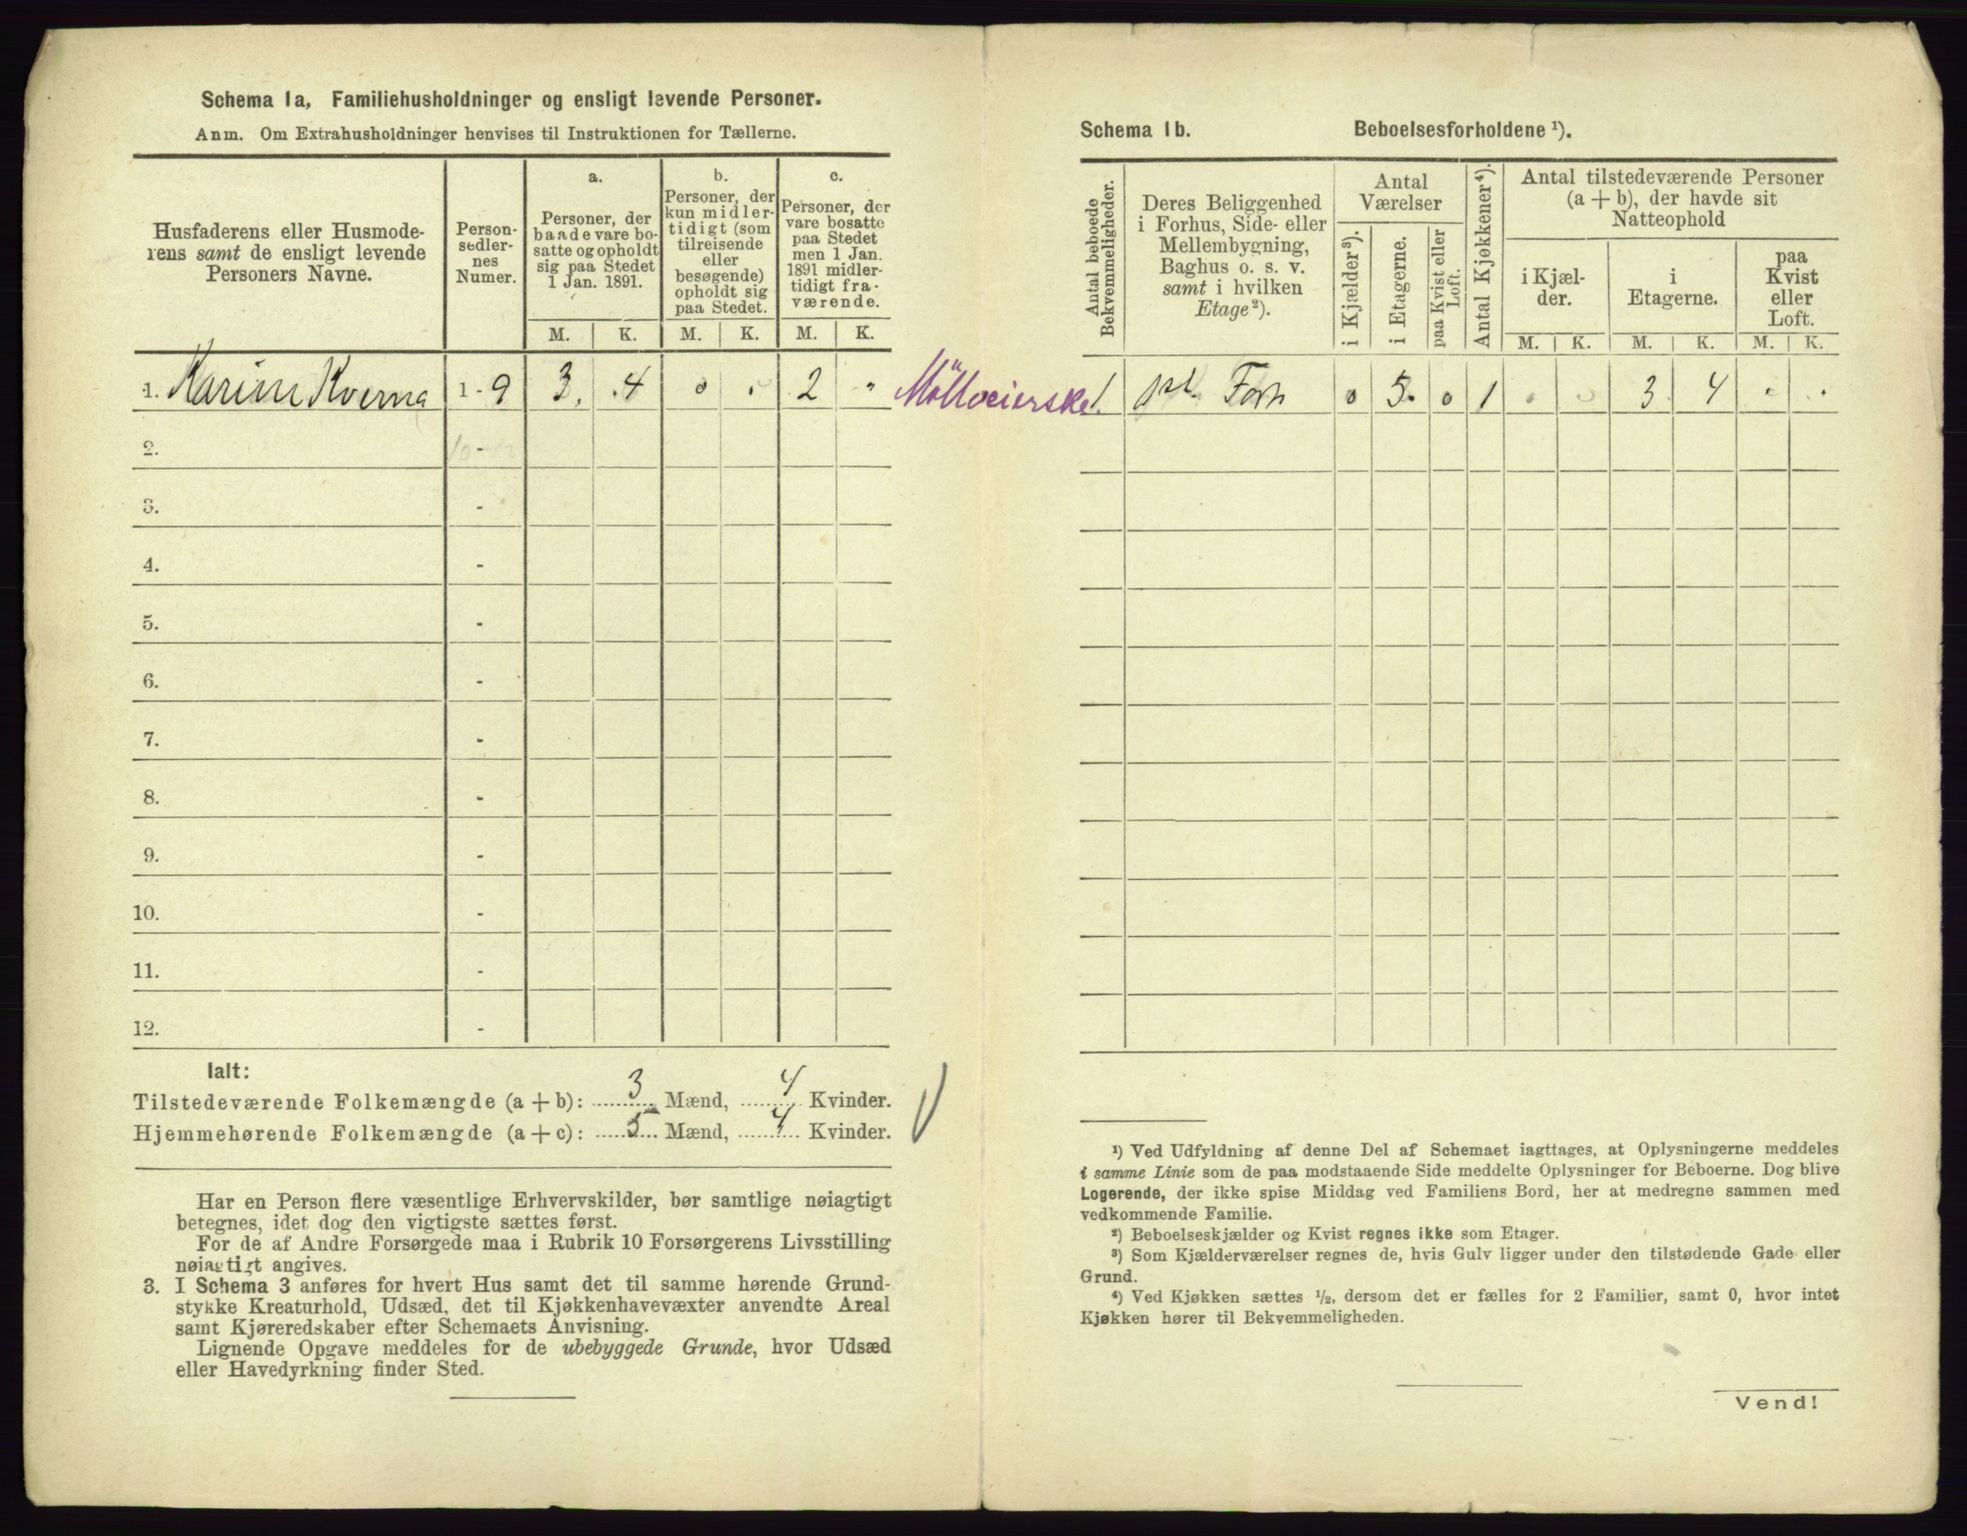 Schema 1a, Familiehusholdninger og ensligt levende Personer.
Anm. Om Extrahusholdninger henvises til Instruktionen for Tællerne.
Husfaderens eller Husmode-
rens samt de ensligt levende
Personers Navne.
Person-
sedler-
nes
Numer.
a.
Personer, der
baade vare bo-
satte og opholdt
sig paa Stedet
1 Jan. 1891.
b.
Personer, der
kun midler-
tidigt (som
tilreisende
eller
besøgende)
opholdt sig
paa Stedet.
c.
Personer, der
vare bosatte
paa Stedet
men 1 Jan.
1891 midler-
tidigt fra-
værende.
M. K. M. K. M. K.
1. Karine Kverna 1 - 9 3. 4 0 . 2 "
Mölloeierske
2. 10-12
3. -
4. -
5. -
6. -
7. -
8. -
9. -
10. -
11. -
12. -
Ialt:
Tilstedeværende Folkemængde (a + b): 3 Mænd, 4 Kvinder.
Hjemmehørende Folkemængde (a + c): 5 Mænd, 4 Kvinder.
Har en Person flere væsentlige Erhvervskilder, bør samtlige nøiagtigt
betegnes, idet dog den vigtigste sættes først.
For de af Andre Forsørgede maa i Rubrik 10 Forsørgerens Livsstilling
nøiagtigt angives.
3. I Schema 3 anføres for hvert Hus samt det til samme hørende Grund-
stykke Kreaturhold, Udsæd, det til Kjøkkenhavevæxter anvendte Areal
samt Kjøreredskaber efter Schemaets Anvisning.
Lignende Opgave meddeles for de ubebyggede Grunde, hvor Udsæd
eller Havedyrkning finder Sted.
Schema 1b. Beboelsesforholdene ¹).
Antal beboede
Bekvemmeligheder.
Deres Beliggenhed
i Forhus, Side- eller
Mellembygning,
Baghus o. s. v.
samt i hvilken
Etage ²).
Antal
Værelser
i Kjælder ³).
i Etagerne.
paa Kvist eller
Loft.
Antal Kjøkkener ⁴).
Antal tilstedeværende Personer
(a + b), der havde sit
Natteophold
i Kjæl-
der.
i
Etagerne.
paa
Kvist
eller
Loft.
M. K. M. K. M. K.
1. Forh 0 5. 0 1 . 0 3 4 . .
¹) Ved Udfyldning af denne Del af Schemaet iagttages, at Oplysningerne meddeles
i samme Linie som de paa modstaaende Side meddelte Oplysninger for Beboerne. Dog blive
Logerende, der ikke spise Middag ved Familiens Bord, her at medregne sammen med
vedkommende Familie.
²) Beboelseskjælder og Kvist regnes ikke som Etager.
³) Som Kjælderværelser regnes de, hvis Gulv ligger under den tilstødende Gade eller
Grund.
⁴) Ved Kjøkken sættes ½, dersom det er fælles for 2 Familier, samt 0, hvor intet
Kjøkken hører til Bekvemmeligheden.
Vend!